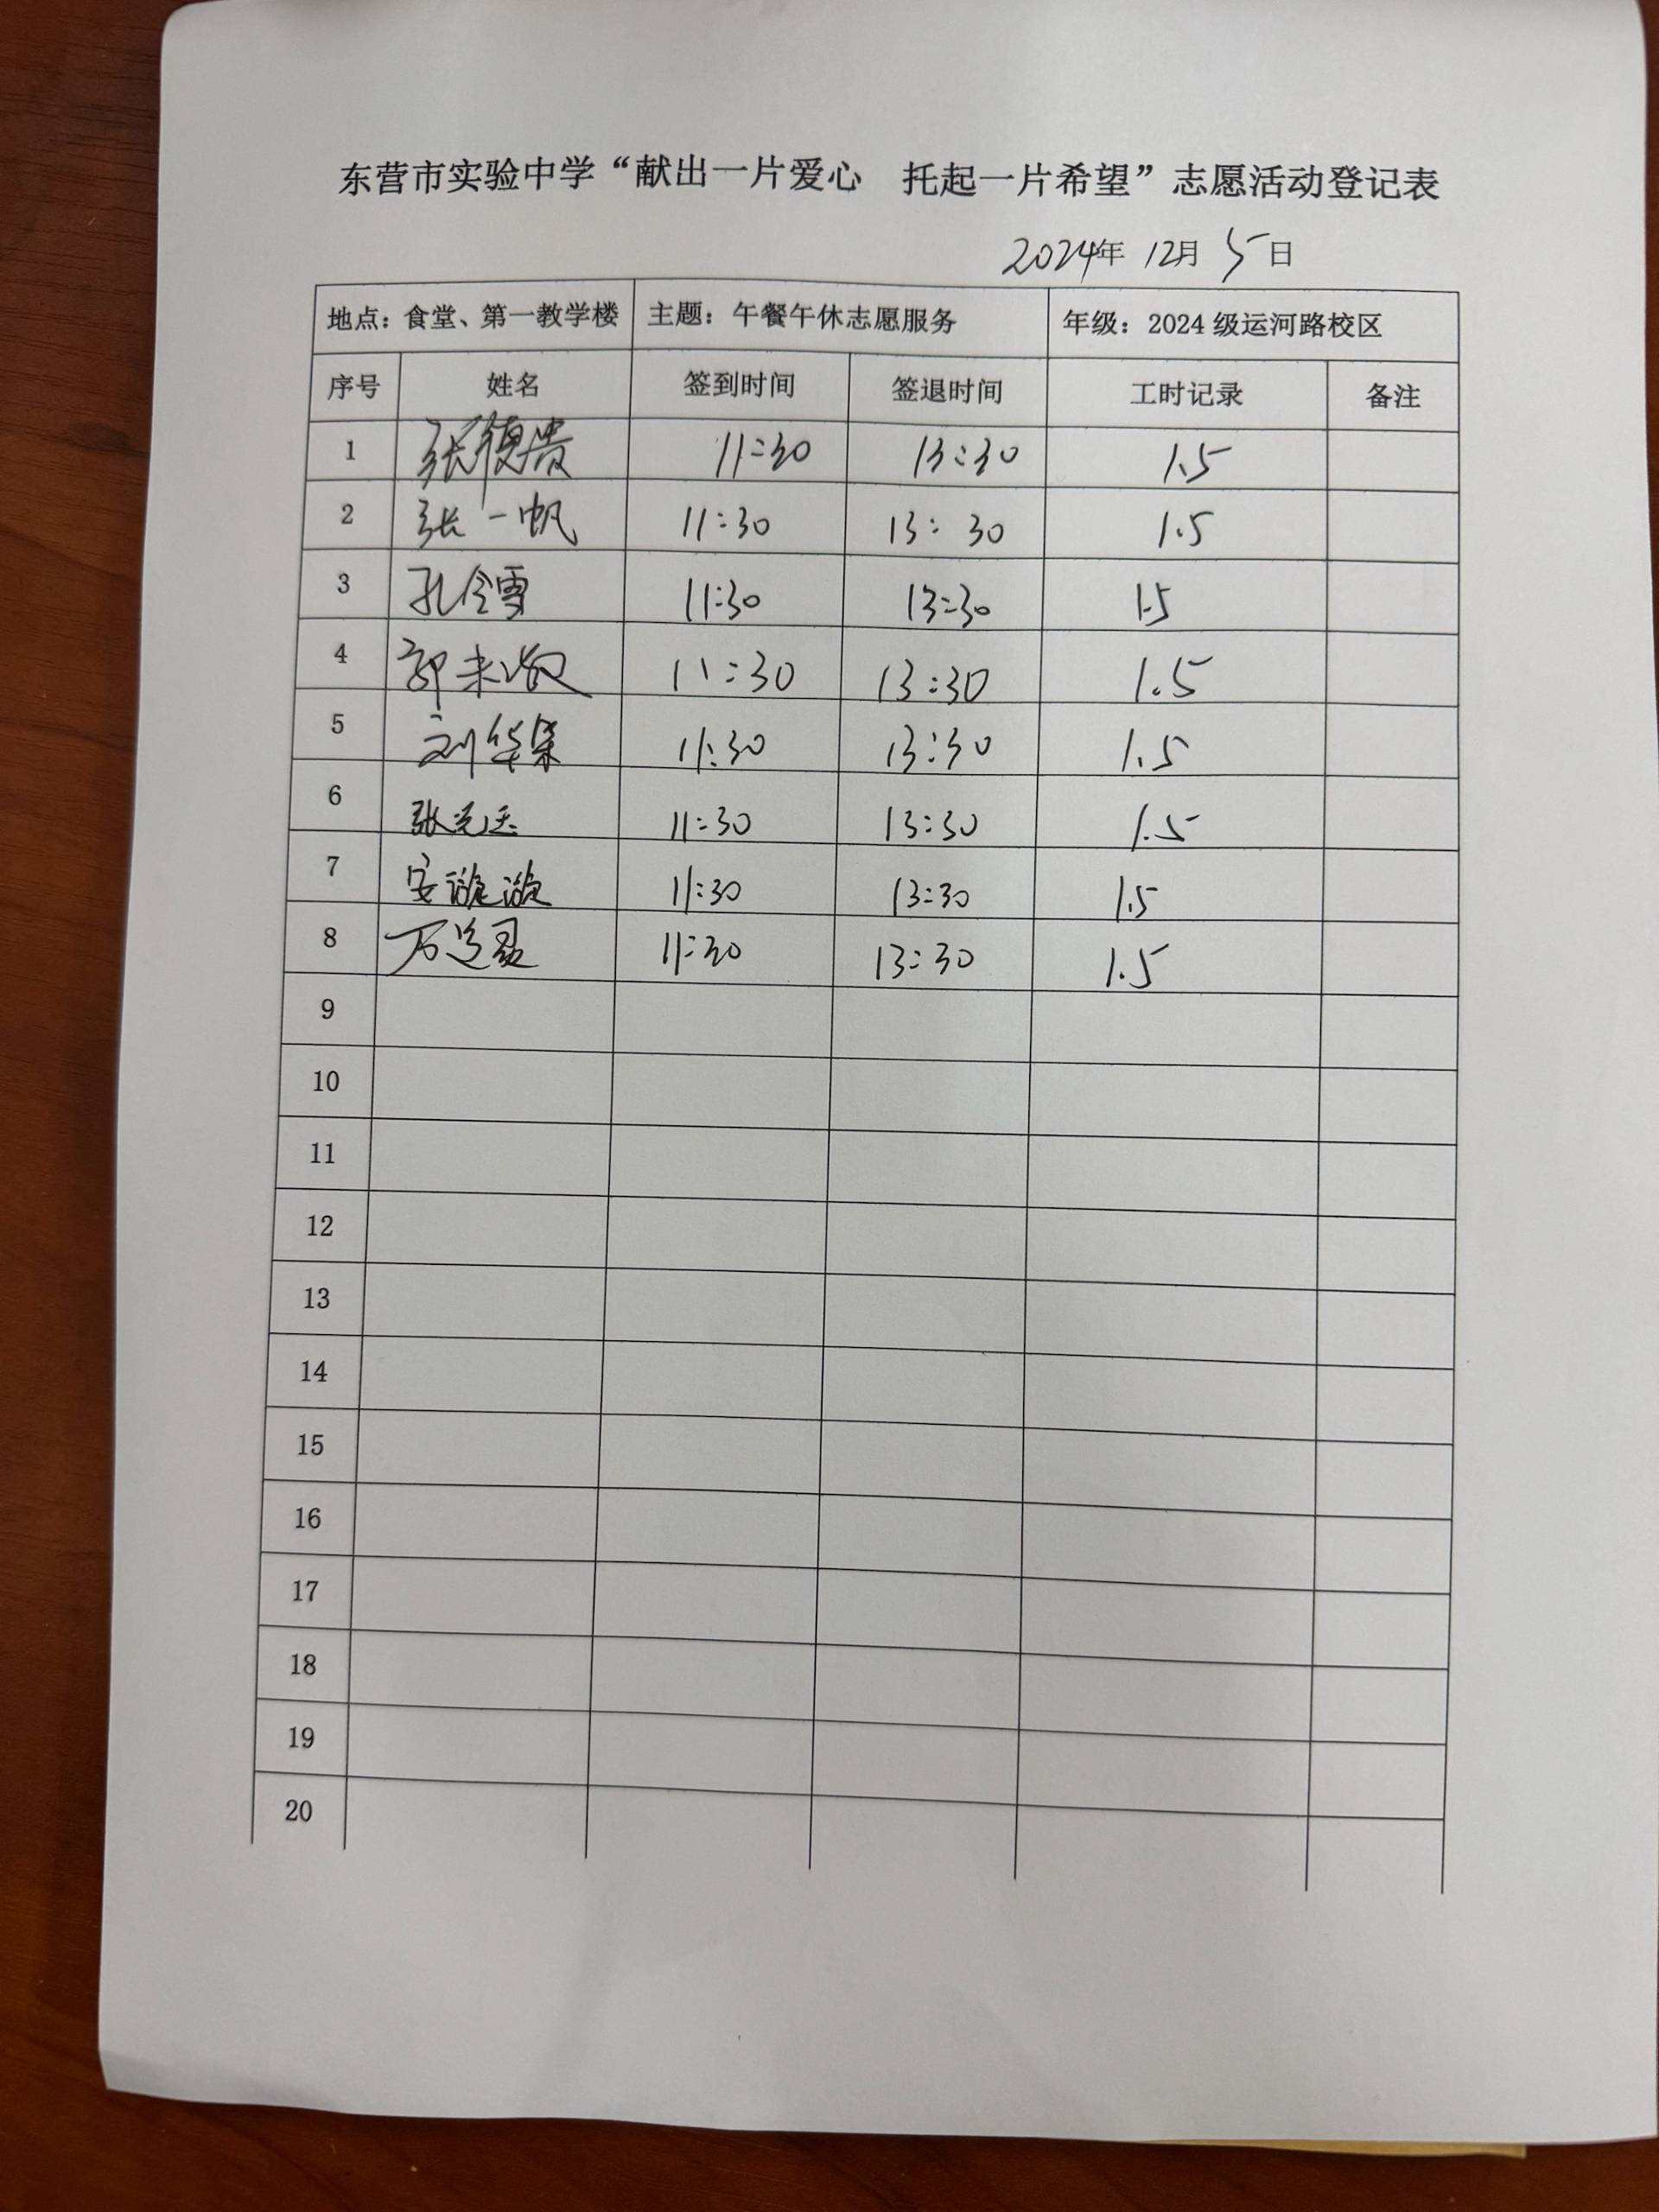 东营市实验中学“献出一片爱心　托起一片希望”志愿活动登记表
2024年 12月 5日
地点：食堂、第一教学楼 主题：午餐午休志愿服务 年级：2024级运河路校区
序号 姓名 签到时间 签退时间 工时记录 备注
1 张德贵 11:30 13:30 1.5
2 张一帆 11:30 13:30 1.5
3 孔令雪 11:30 13:30 1.5
4 11:30 13:30 1.5
5 刘华荣 11:30 13:30 1.5
6 11:30 13:30 1.5
7 11:30 13:30 1.5
8 11:30 13:30 1.5
9
10
11
12
13
14
15
16
17
18
19
20